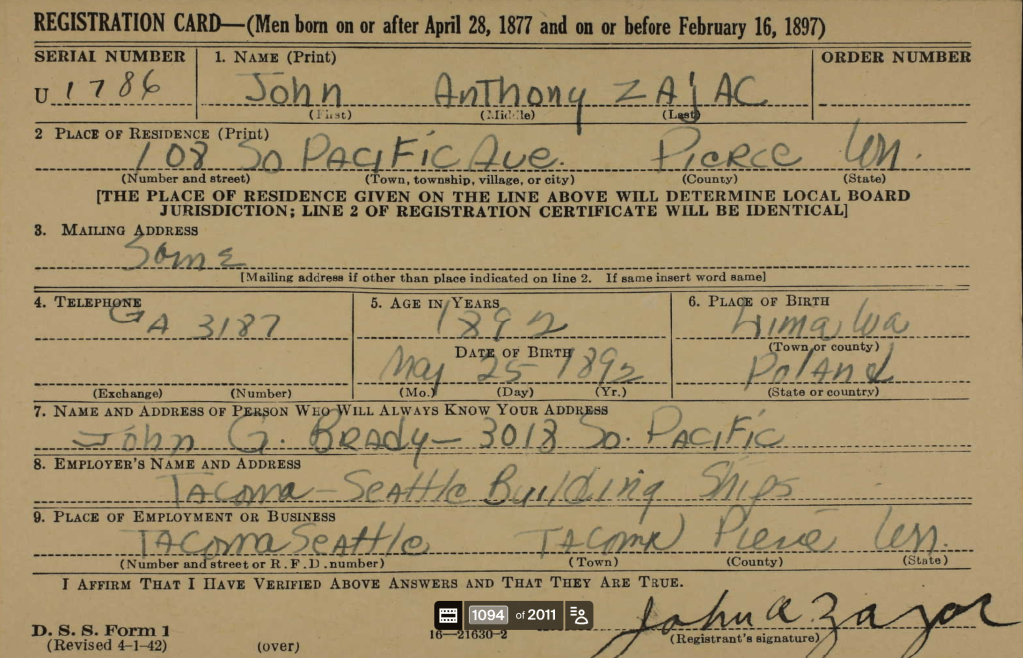 REGISTRATION CARD—(Men born on or after April 28, 1877 and on or before February 16, 1897)
SERIAL NUMBER
U 1786
1. NAME (Print)
John Anthony ZAJAC
(First) (Middle) (Last)
ORDER NUMBER
2 PLACE OF RESIDENCE (Print)
108 So PACIFIC Ave. PIERCE Wn.
(Number and street) (Town, township, village, or city) (County) (State)
[THE PLACE OF RESIDENCE GIVEN ON THE LINE ABOVE WILL DETERMINE LOCAL BOARD
JURISDICTION; LINE 2 OF REGISTRATION CERTIFICATE WILL BE IDENTICAL]
3. MAILING ADDRESS
Same
[Mailing address if other than place indicated on line 2. If same insert word same]
4. TELEPHONE
GA 3187
(Exchange) (Number)
5. AGE IN YEARS
1892
DATE OF BIRTH
May 25 1892
(Mo.) (Day) (Yr.)
6. PLACE OF BIRTH
(Town or county)
Poland
(State or country)
7. NAME AND ADDRESS OF PERSON WHO WILL ALWAYS KNOW YOUR ADDRESS
John G. Brady— 3018 So. PACIFIC
8. EMPLOYER'S NAME AND ADDRESS
TACOMA—SeATTle Building Ships
9. PLACE OF EMPLOYMENT OR BUSINESS
TACOMA SeATTle TACOMA Pierce Wn.
(Number and street or R. F. D. number) (Town) (County) (State)
I AFFIRM THAT I HAVE VERIFIED ABOVE ANSWERS AND THAT THEY ARE TRUE.
1094 of 2011
John A. Zajac
D. S. S. Form 1
(Revised 4-1-42) (over) 16—21630-2 (Registrant's signature)